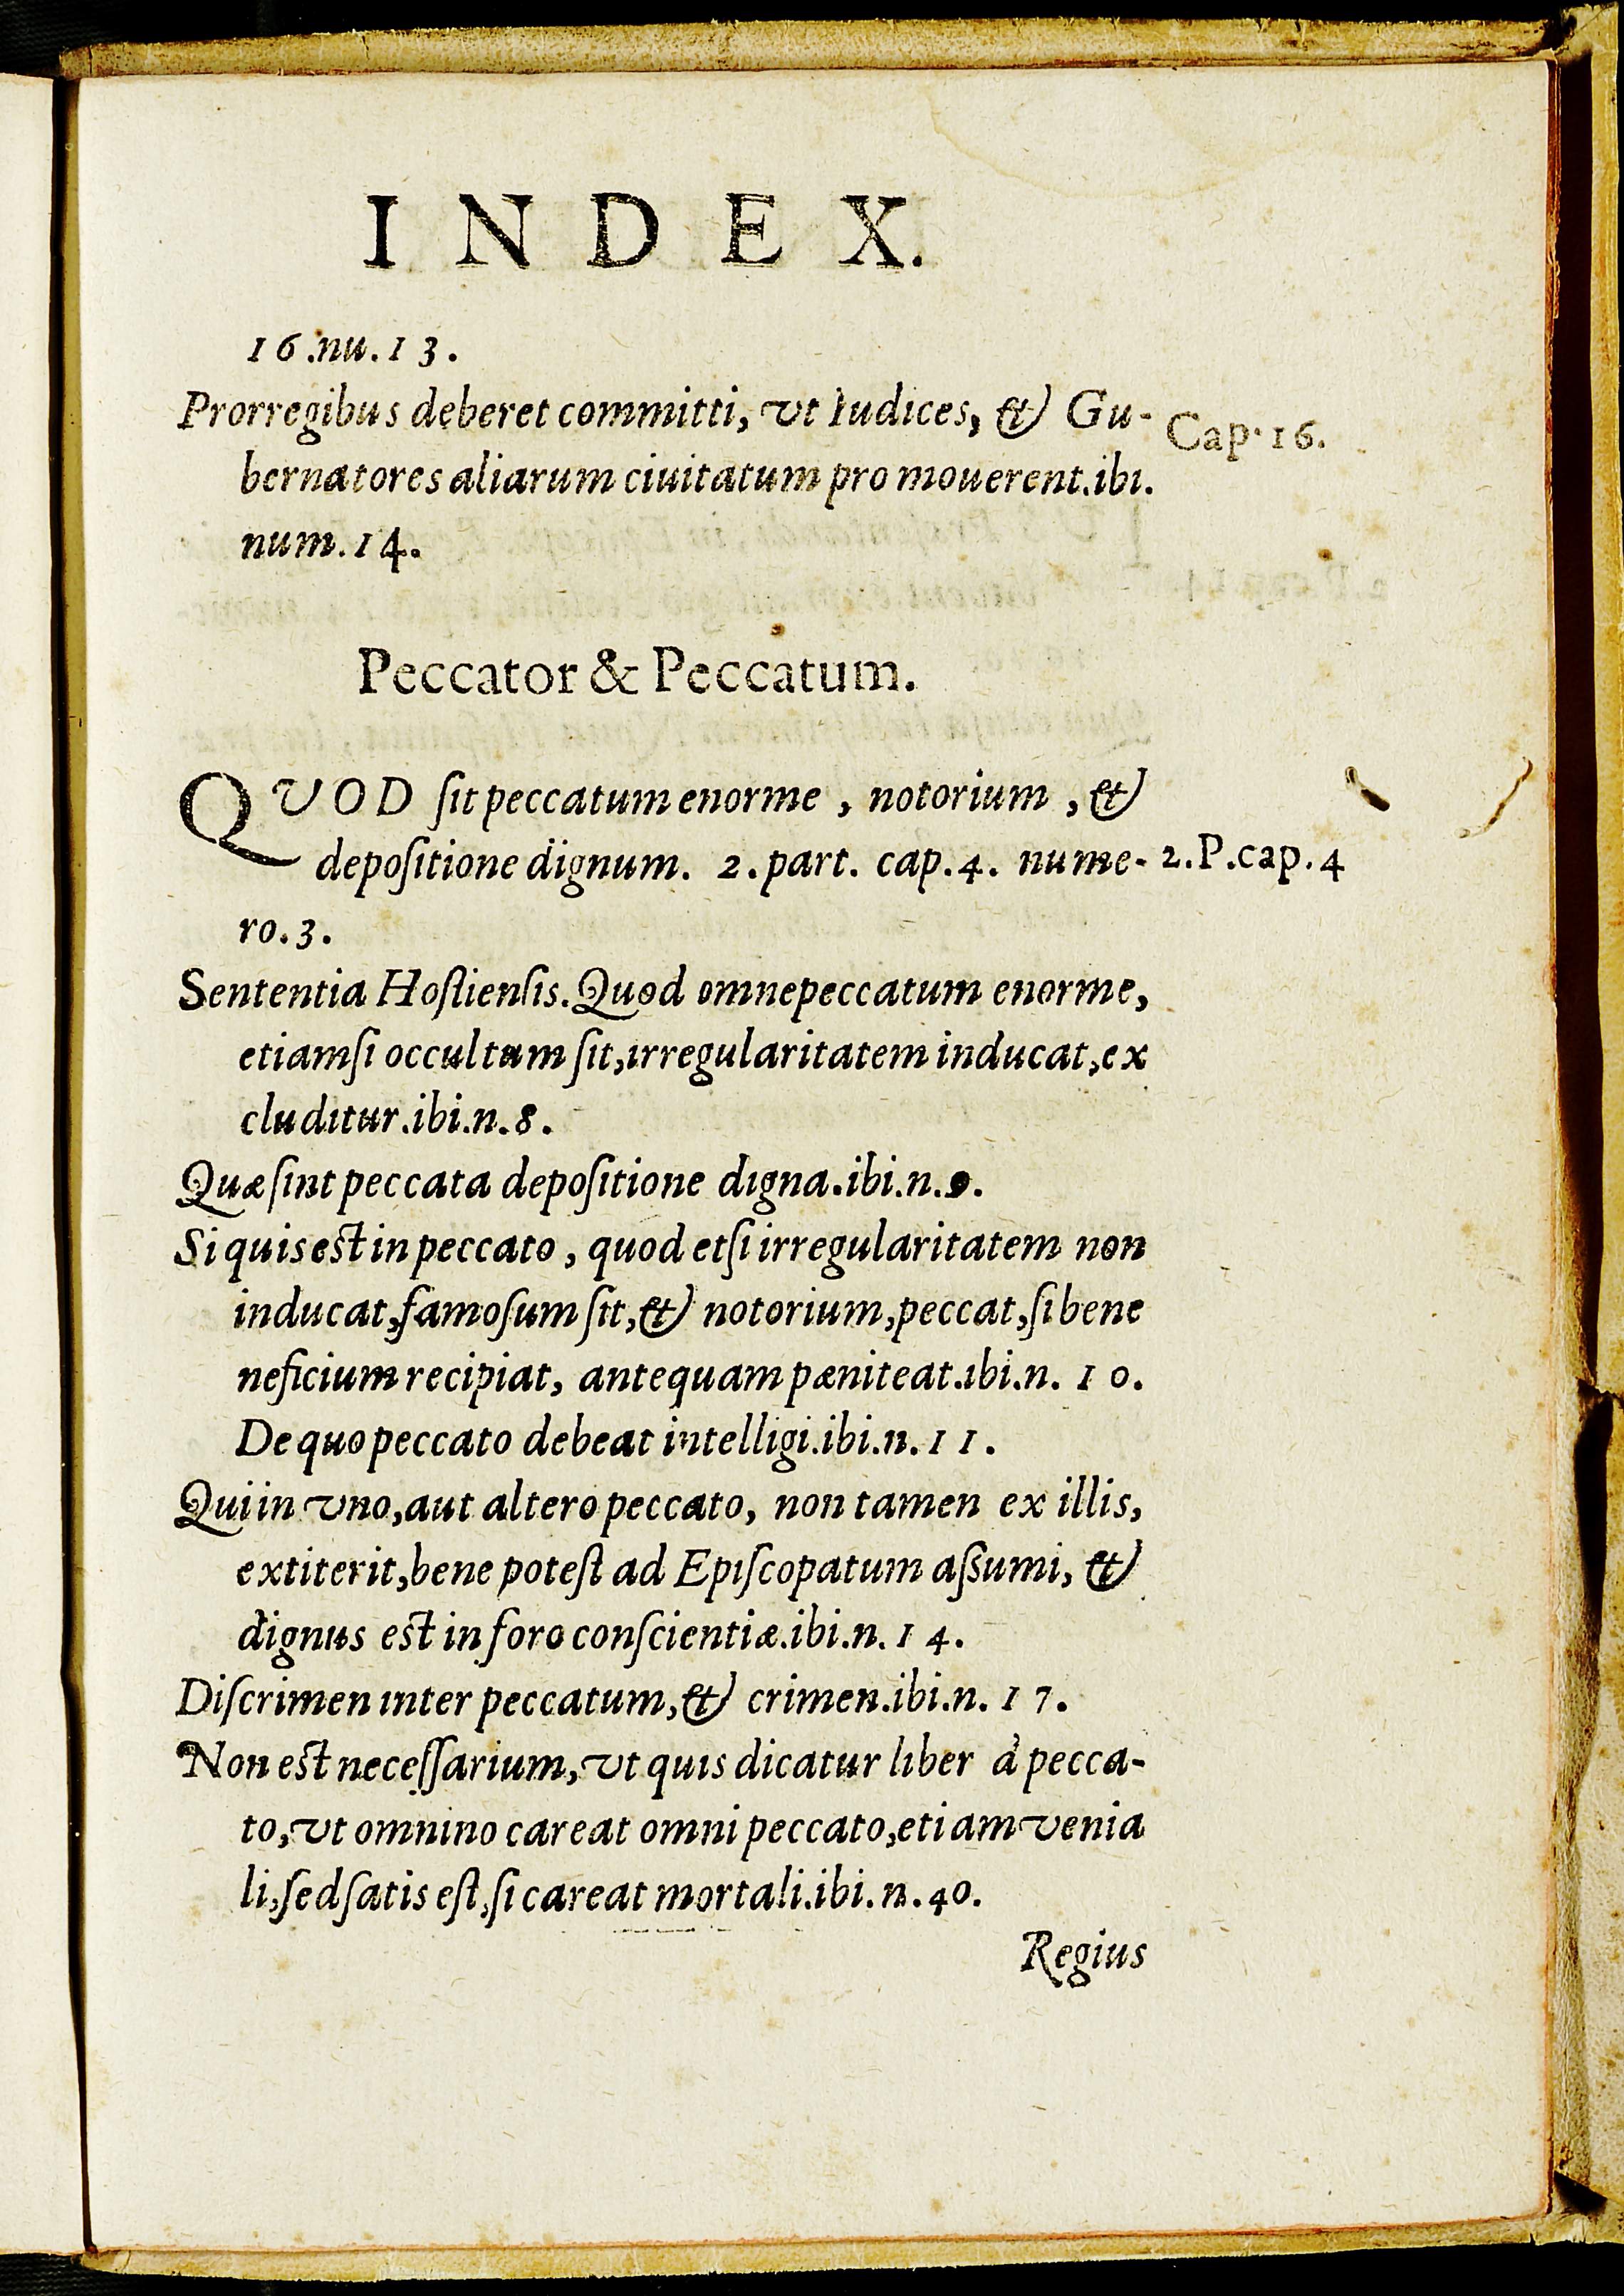 INDEX.
16.nu.13.
Prorregibus deberet committi, vt Iudices, & Gu-
Cap.16.
bernatores aliarum ciuitatum promouerent.ibi.
num.14.
Peccator & Peccatum.
QVOD ſit peccatum enorme, notorium, &
depoſitione dignum. 2.part. cap.4. nume-
2.P.cap.4
ro.3.
Sententia Hoſtienſis. Quod omne peccatum enorme,
etiamſi occultum ſit, irregularitatem inducat, ex
cluditur.ibi.n.8.
Quæ ſint peccata depoſitione digna.ibi.n.9.
Si quis est in peccato, quod etſi irregularitatem non
inducat, famoſum ſit, & notorium, peccat, ſi bene
neficium recipiat, antequam pæniteat.ibi.n.10.
De quo peccato debeat intelligi.ibi.n.11.
Qui in vno, aut altero peccato, non tamen ex illis,
extiterit, bene poteſt ad Epiſcopatum aſſumi, &
dignus est in foro conſcientiæ.ibi.n.14.
Diſcrimen inter peccatum, & crimen.ibi.n.17.
Non est neceſſarium, vt quis dicatur liber à pecca-
to, vt omnino careat omni peccato, etiam venia
li, ſed ſatis eſt, ſi careat mortali.ibi.n.40.
Regius